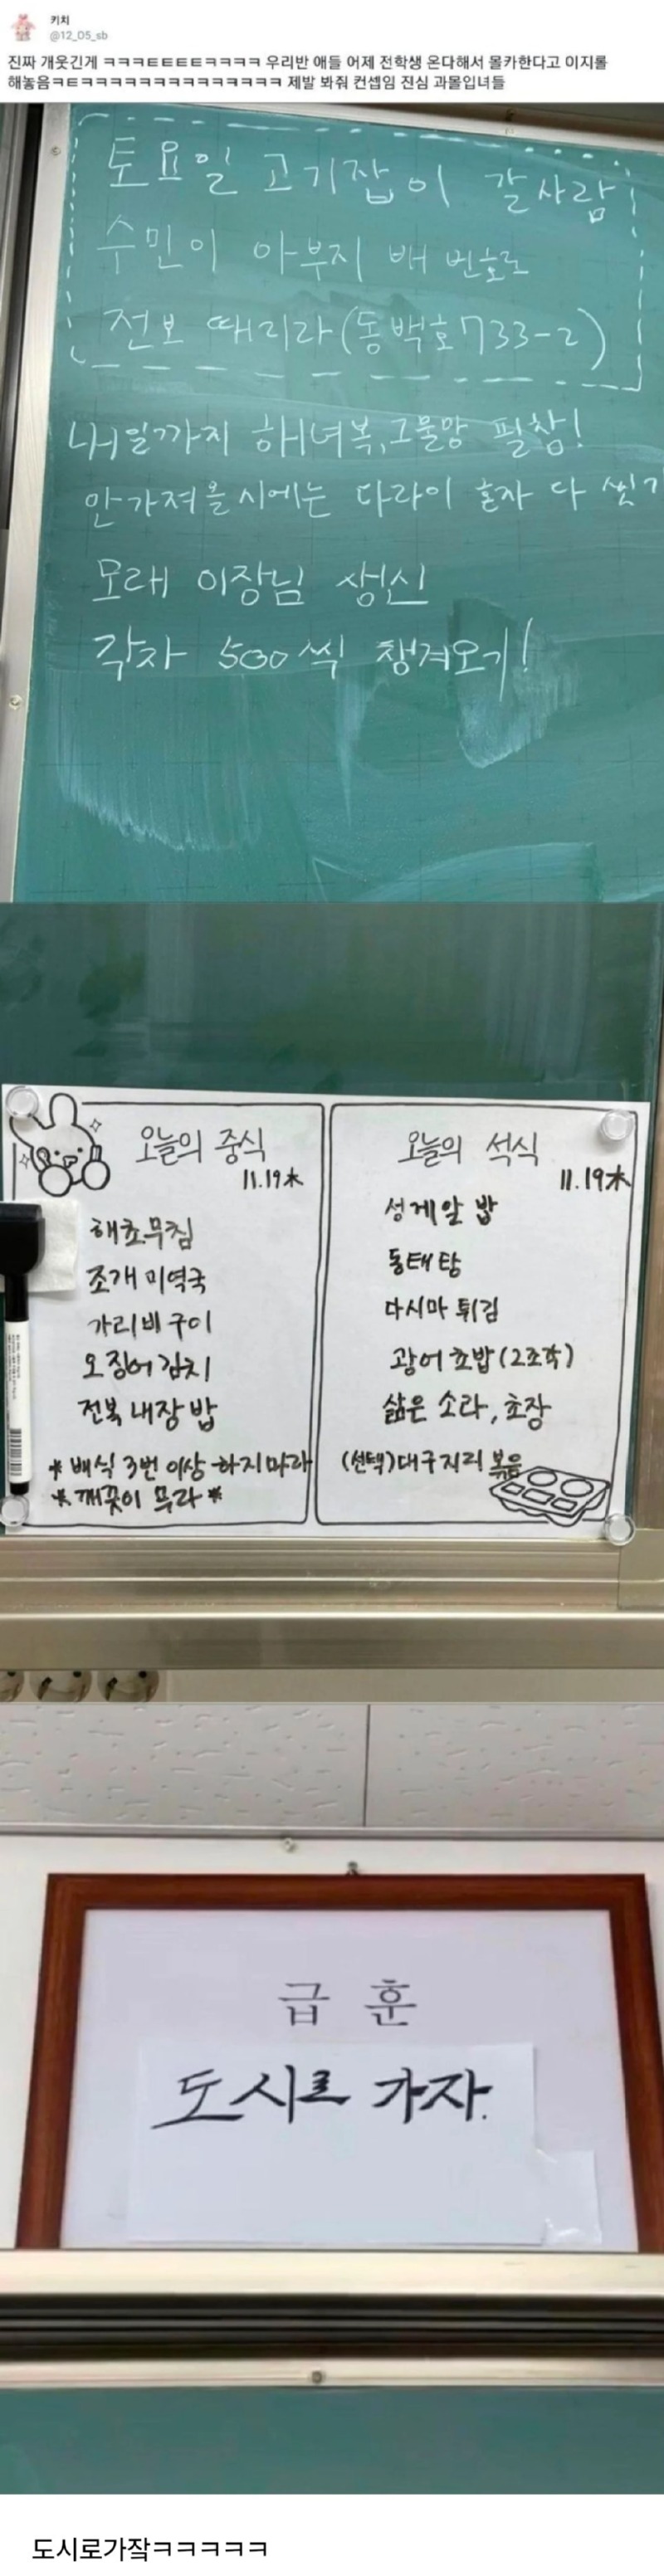 키치
@12_05_sb
진짜 개웃긴게 ㅋㅋㅋㅌㅌㅌㅌㅋㅋㅋㅋ 우리반 애들 어제 전학생 온다해서 몰카한다고 이지롤
해놓음ㅋㅌㅋㅋㅋㅋㅋㅋㅋㅋㅋㅋㅋㅋㅋㅋㅋ 제발 봐줘 컨셉임 진심 과몰입녀들
토요일 고기잡이 갈사람
수민이 아부지 배 번호로
전보 때리라(동백호733-2)
내일까지 해녀복,그물망 필참!
안가져올시에는 다라이 혼자 다 씻기
모레 이장님 생신
각자 500씩 챙겨오기!
오늘의 중식
11.19木
해초무침
조개 미역국
가리비구이
오징어김치
전복 내장 밥
*배식 3번 이상 하지마라
*깨끗이 무라*
오늘의 석식
11.19木
성게알 밥
동태탕
다시마 튀김
광어 초밥(2조각)
삶은 소라, 초장
(선택)대구지리 볶음
급 훈
도시로 가자.
도시로가잨ㅋㅋㅋㅋㅋ